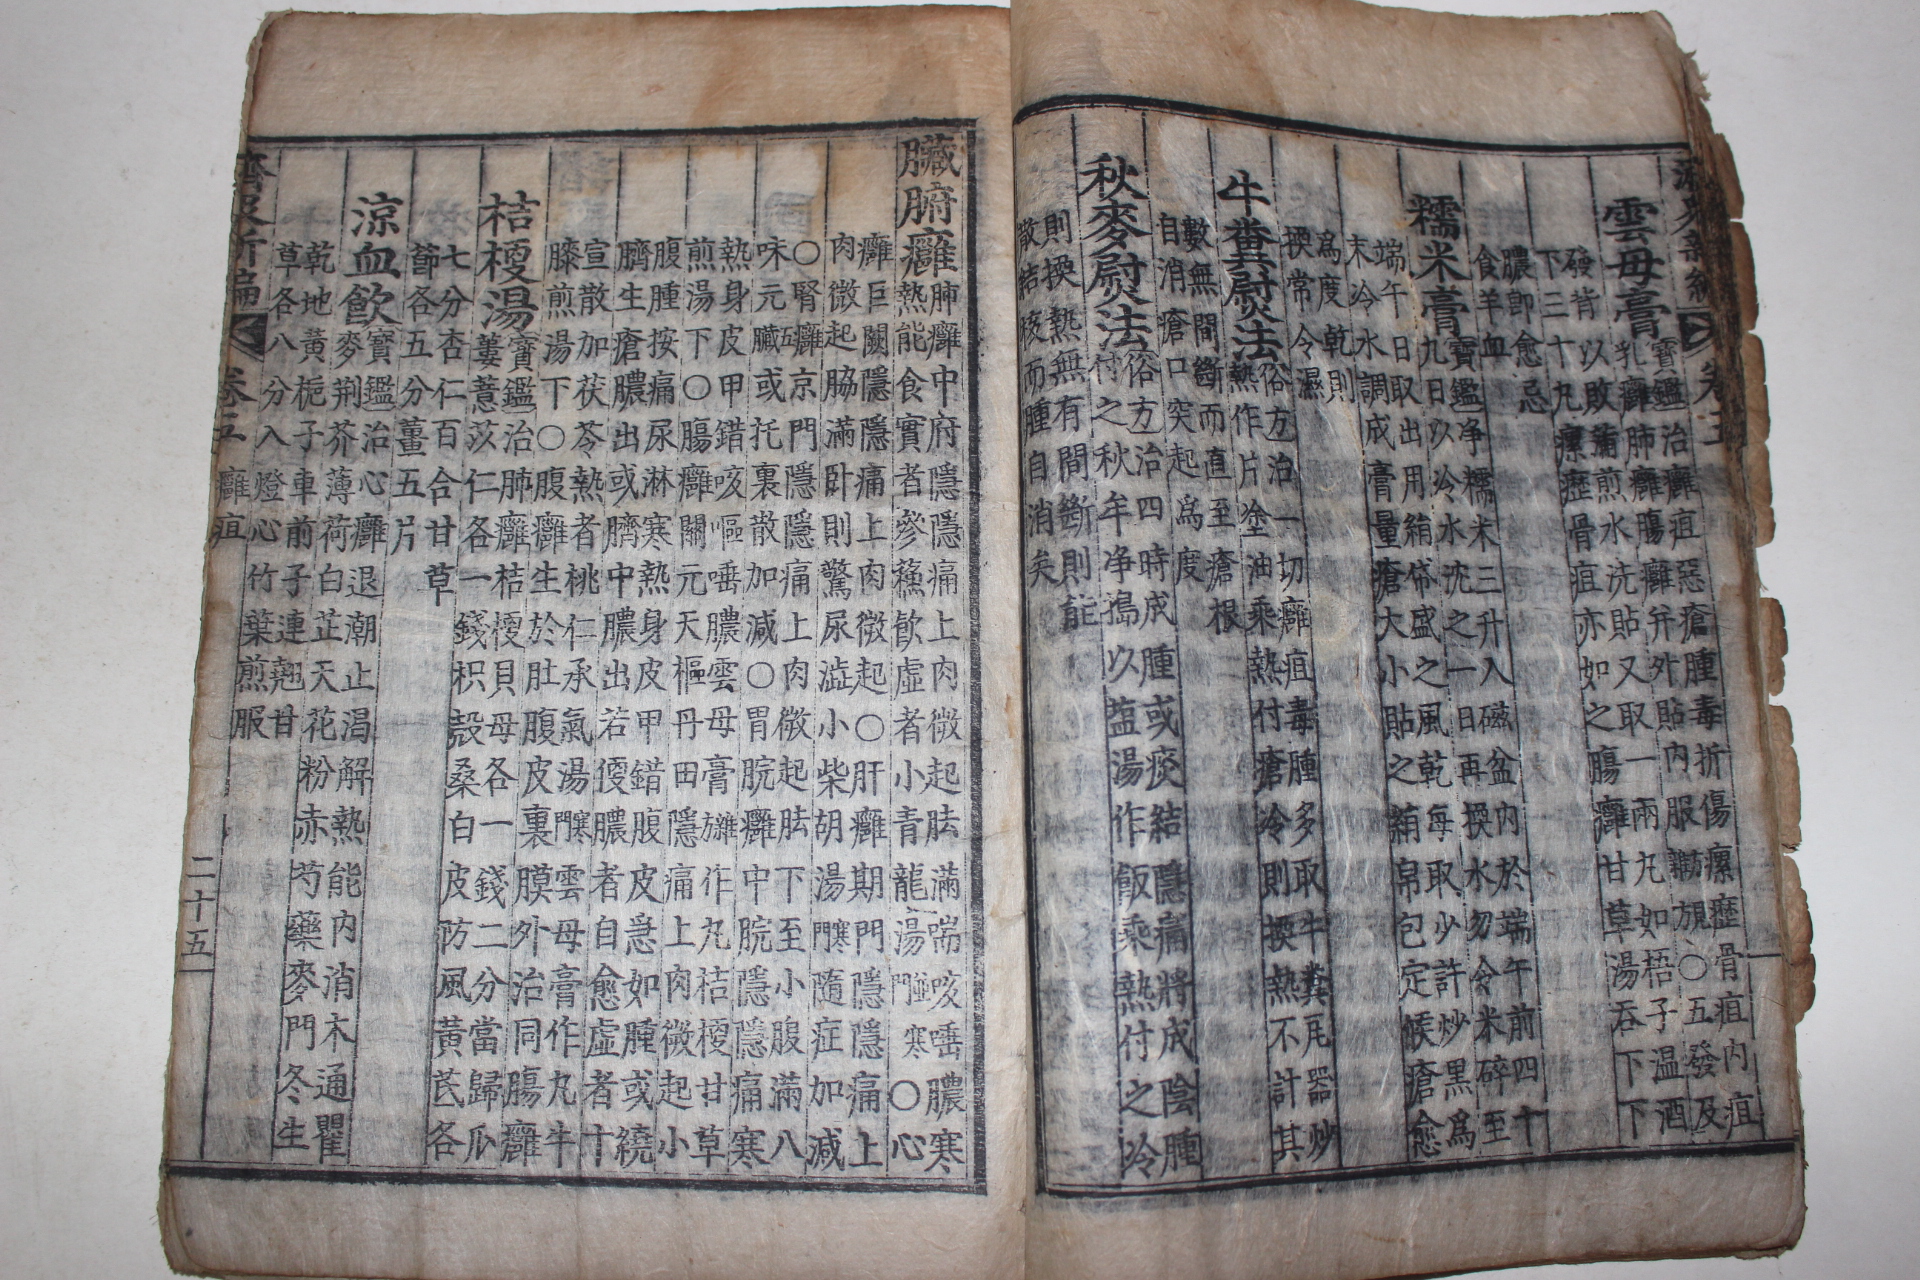 濟衆新編 卷五
雲母膏 寶鑑治癰疽惡瘡腫毒折傷瘰癧骨疽內疽
乳癰肺癰腸癰幷外貼內服○五發及
發背以敗蒲煎水洗貼又取一兩九如梧子温酒
下三十九瘰癧骨疽亦如之腸癰甘草湯吞下下
膿即愈忌
食羊血
糯米膏 寶鑑净糯米三升入磁盆內於端午前四十
九日以冷水沈之一日再換水勿令米碎至
端午日取出用絹帒盛之風乾每取少許炒黑爲
末冷水調成膏量瘡大小貼之絹帛包定候瘡愈
爲度乾則
換常令濕
牛糞熨法 俗方治一切癰疽毒腫多取牛糞瓦器炒
熱作片塗油乘熱付瘡冷則換熱不計其
數無間斷而直至瘡根
自消瘡口突起爲度
秋麥熨法 俗方治四時成腫或痰結隱痛將成陰腫
付之秋牟净搗以塩湯作飯乘熱付之冷
則換熱無有間斷則能
散結痰而腫自消矣
臟腑癰 肺癰中府隱隱痛上肉微起胠滿喘咳唾膿寒
熱能食實者參蘓飮虛者小青龍湯寒門○心
癰巨闕隱隱痛上肉微起○肝癰期門隱隱痛上
肉微起脇滿卧則驚尿澁小柴胡湯寒門隨症加減
○腎癰京門隱隱痛上肉微起胠下至小腹滿八
味元五臟或托裏散加減○胃脘癰中脘隱痛寒
熱身皮甲錯咳嘔唾膿雲母膏作丸桔梗甘草
煎湯下○腸癰關元天樞丹田隱痛上肉微起小
腹腫按痛尿淋寒熱身皮甲錯腹皮急如腫或繞
臍生瘡膿出或臍中膿出若便膿者自愈虛者十
宣散加茯苓熱者桃仁承氣湯寒門雲母膏作丸牛
膝煎湯下○腹癰生於肚腹皮裏膜外治同腸癰
桔梗湯 寶鑑治肺癰桔梗貝母各一錢二分當歸瓜
蔞薏苡仁各一錢枳殼桑白皮防風黃芪各
七分杏仁百合甘草
節各五分薑五片
涼血飮 寶鑑治心癰退潮止渴解熱能內消木通瞿
麥荆芥薄荷白芷天花粉赤芍藥麥門冬生
乾地黃梔子車前子連翹甘
草各八分入燈心竹葉煎服
濟衆新編 卷五 癰疽 二十五